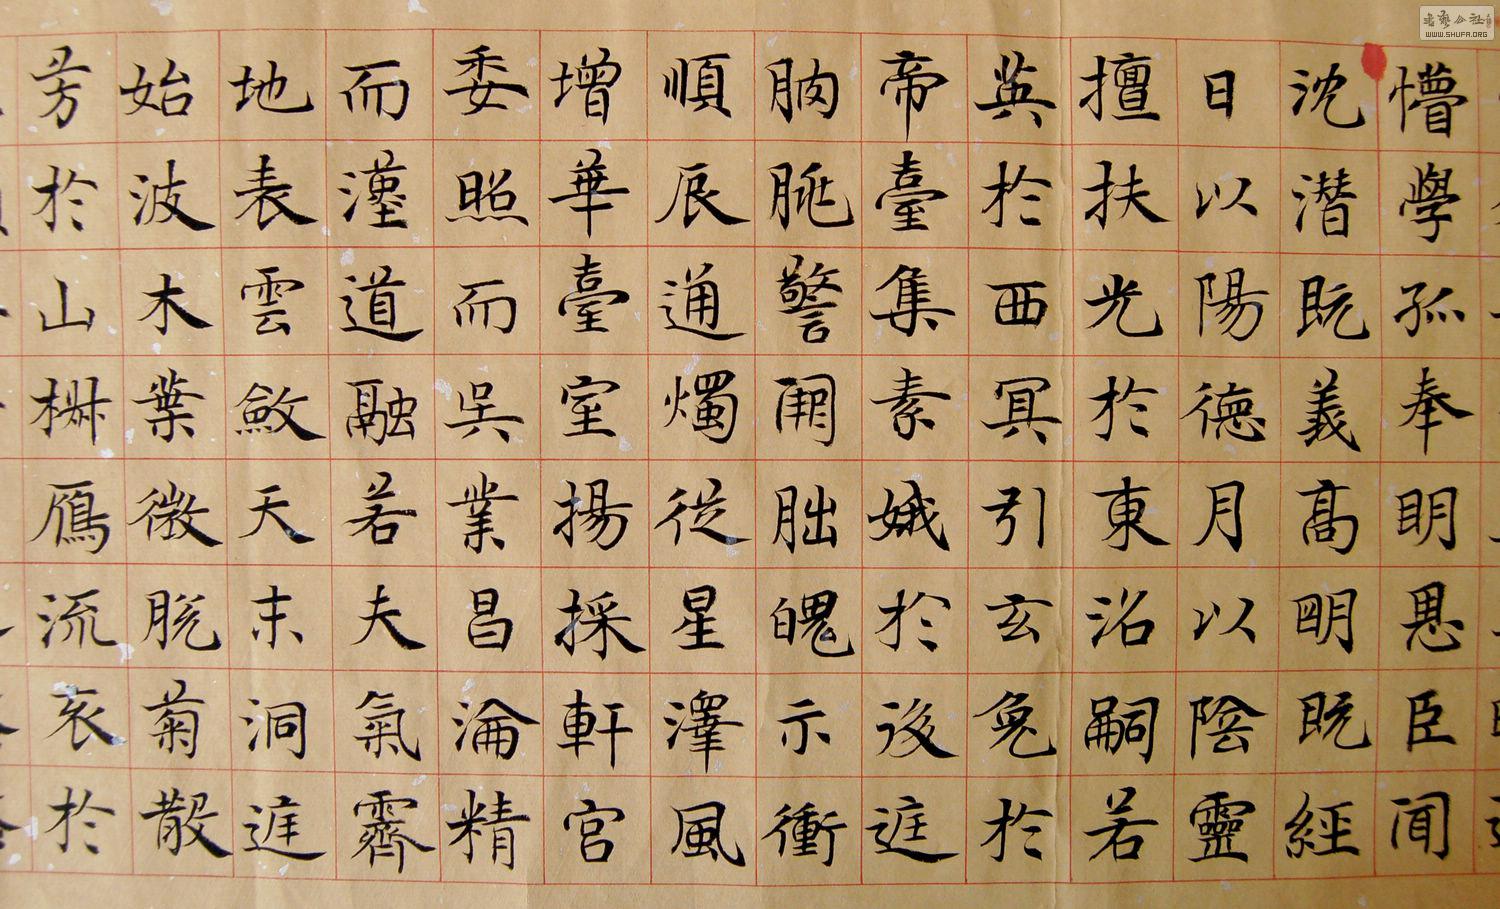 懵學孤奉明恩臣聞
沈潛既義高明既經
日以陽德月以陰靈
擅扶光於東沼嗣若
英於西冥引玄兔於
帝臺集素娥於後庭
朒朓警闕朏魄示衝
順辰通燭從星澤風
增華臺室揚採軒宮
委照而吳業昌淪精
而漢道融若夫氣霽
地表雲斂天末洞庭
始波木葉微脫菊散
芳於山椒雁流哀於
WWW.SHUFA.ORG